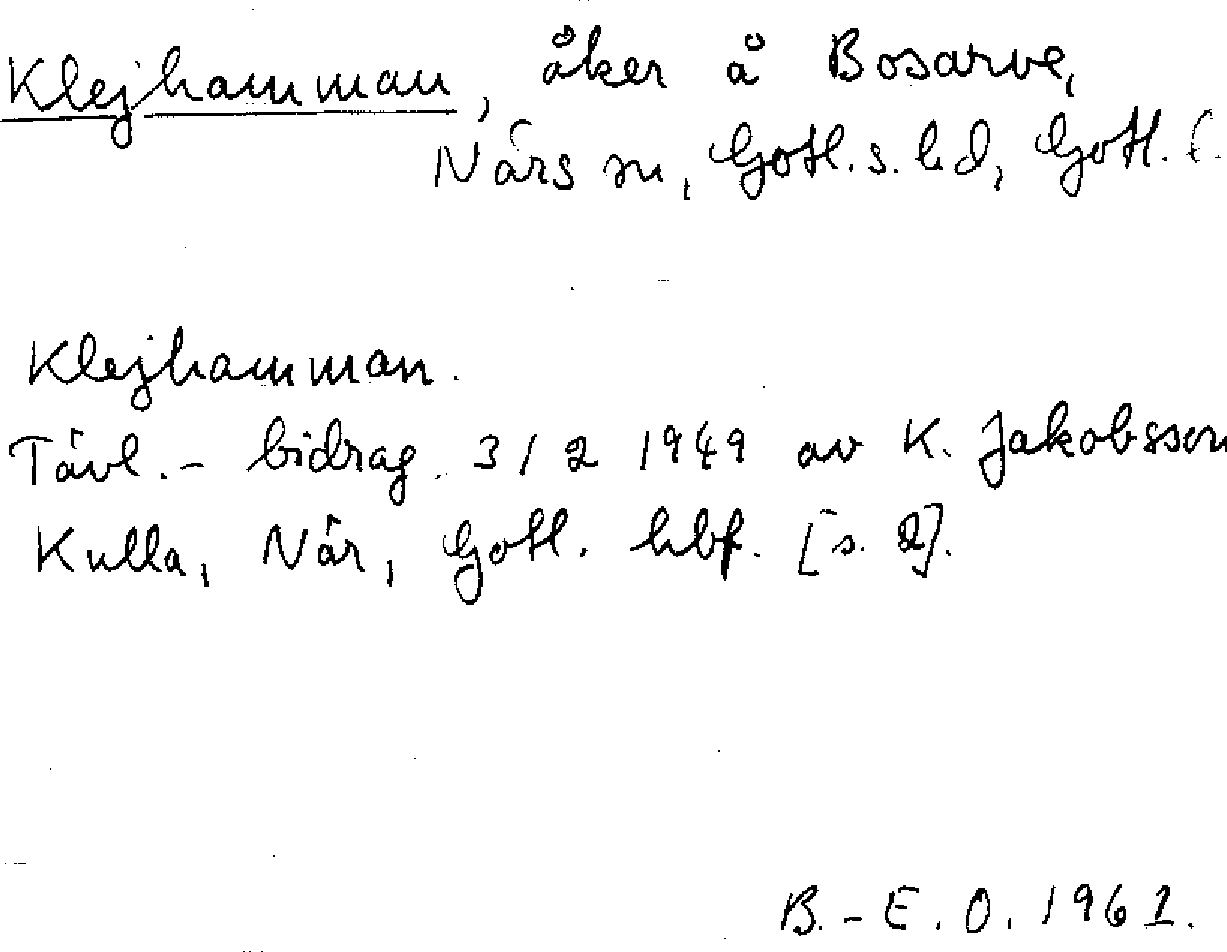 Klejhamman, åker å Bosarve,
Närs sn, Gotl. s. hd, Gotl.
Klejhamman.
Tävl.- bidrag. 3/2 1949 av K. Jakobsson
Kulla, När, Gotl. hbf. [s. 2].
B.-E. O. 1961.